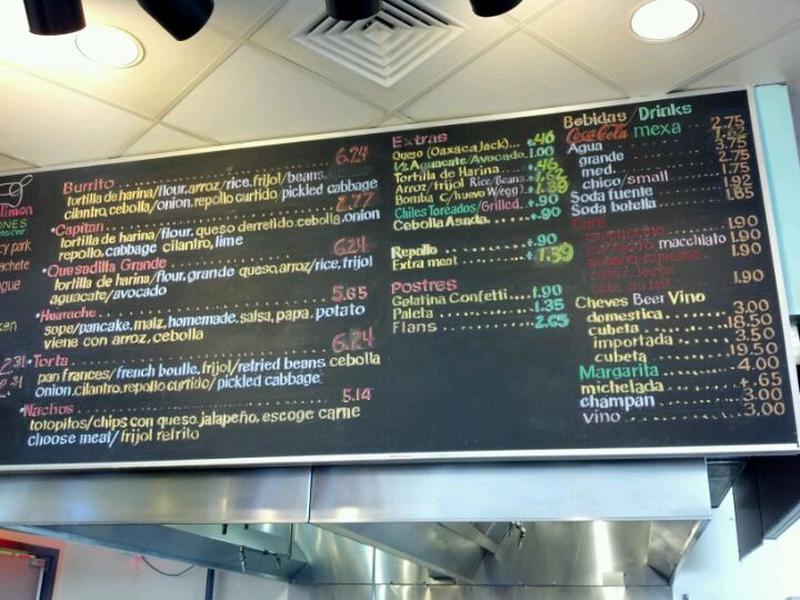 Limon
ONES
cy park
ken
2.31
2.31
Burrito 6.24
tortilla de harina/flour, arroz/rice, frijol/beans,
cilantro, cebolla/onion, repollo curtido, pickled cabbage
•Capitan 2.77
tortilla de harina/flour, queso derretido, cebolla, onion
repollo, cabbage cilantro, lime
•Quesadilla Grande 6.24
tortilla de harina/flour, grande queso, arroz/rice, frijol
aguacate/avocado
•Huarache 5.65
sope/pancake, maiz, homemade, salsa, papa, potato
viene con arroz, cebolla
•Torta 6.24
pan frances/french boulle, frijol/retried beans cebolla
onion, cilantro, repollo curtido/pickled cabbage
•Nachos 5.14
totopitos/chips con queso, jalapeño, escoge carne
choose meat/frijol refrito
Extras
Queso (Oaxaca Jack)... +.46
1/2 Aguacate/Avocado. 1.00
Tortilla de Harina +.46
Arroz/frijol Rice/Beans
Bomba c/huevo W/egg) +1.39
Chiles Toreados/Grilled +.90
Cebolla Asada +.90
Repollo +.90
Extra meat 1.39
Postres
Gelatina Confetti.... 1.90
Paleta 1.35
Flans 2.65
Bebidas/Drinks
Coca Cola mexa 2.75
Agua
grande 2.75
med. 1.75
chico/small
Soda fuente 1.65
Soda botella
macchiato 1.90
1.90
1.90
1.90
Cheves Beer Vino
domestica 3.00
cubeta 18.50
importada 3.50
cubeta 19.50
Margarita 4.00
michelada +.65
champan 3.00
vino 3.00